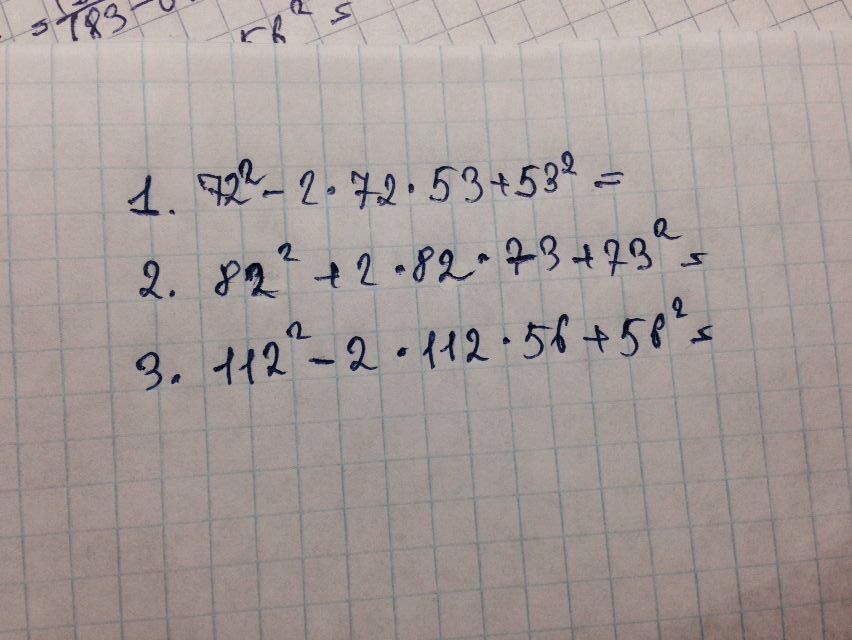 183
1. 72² - 2 · 72 · 53 + 53² =
2. 82² + 2 · 82 · 73 + 73² =
3. 112² - 2 · 112 · 56 + 56² =